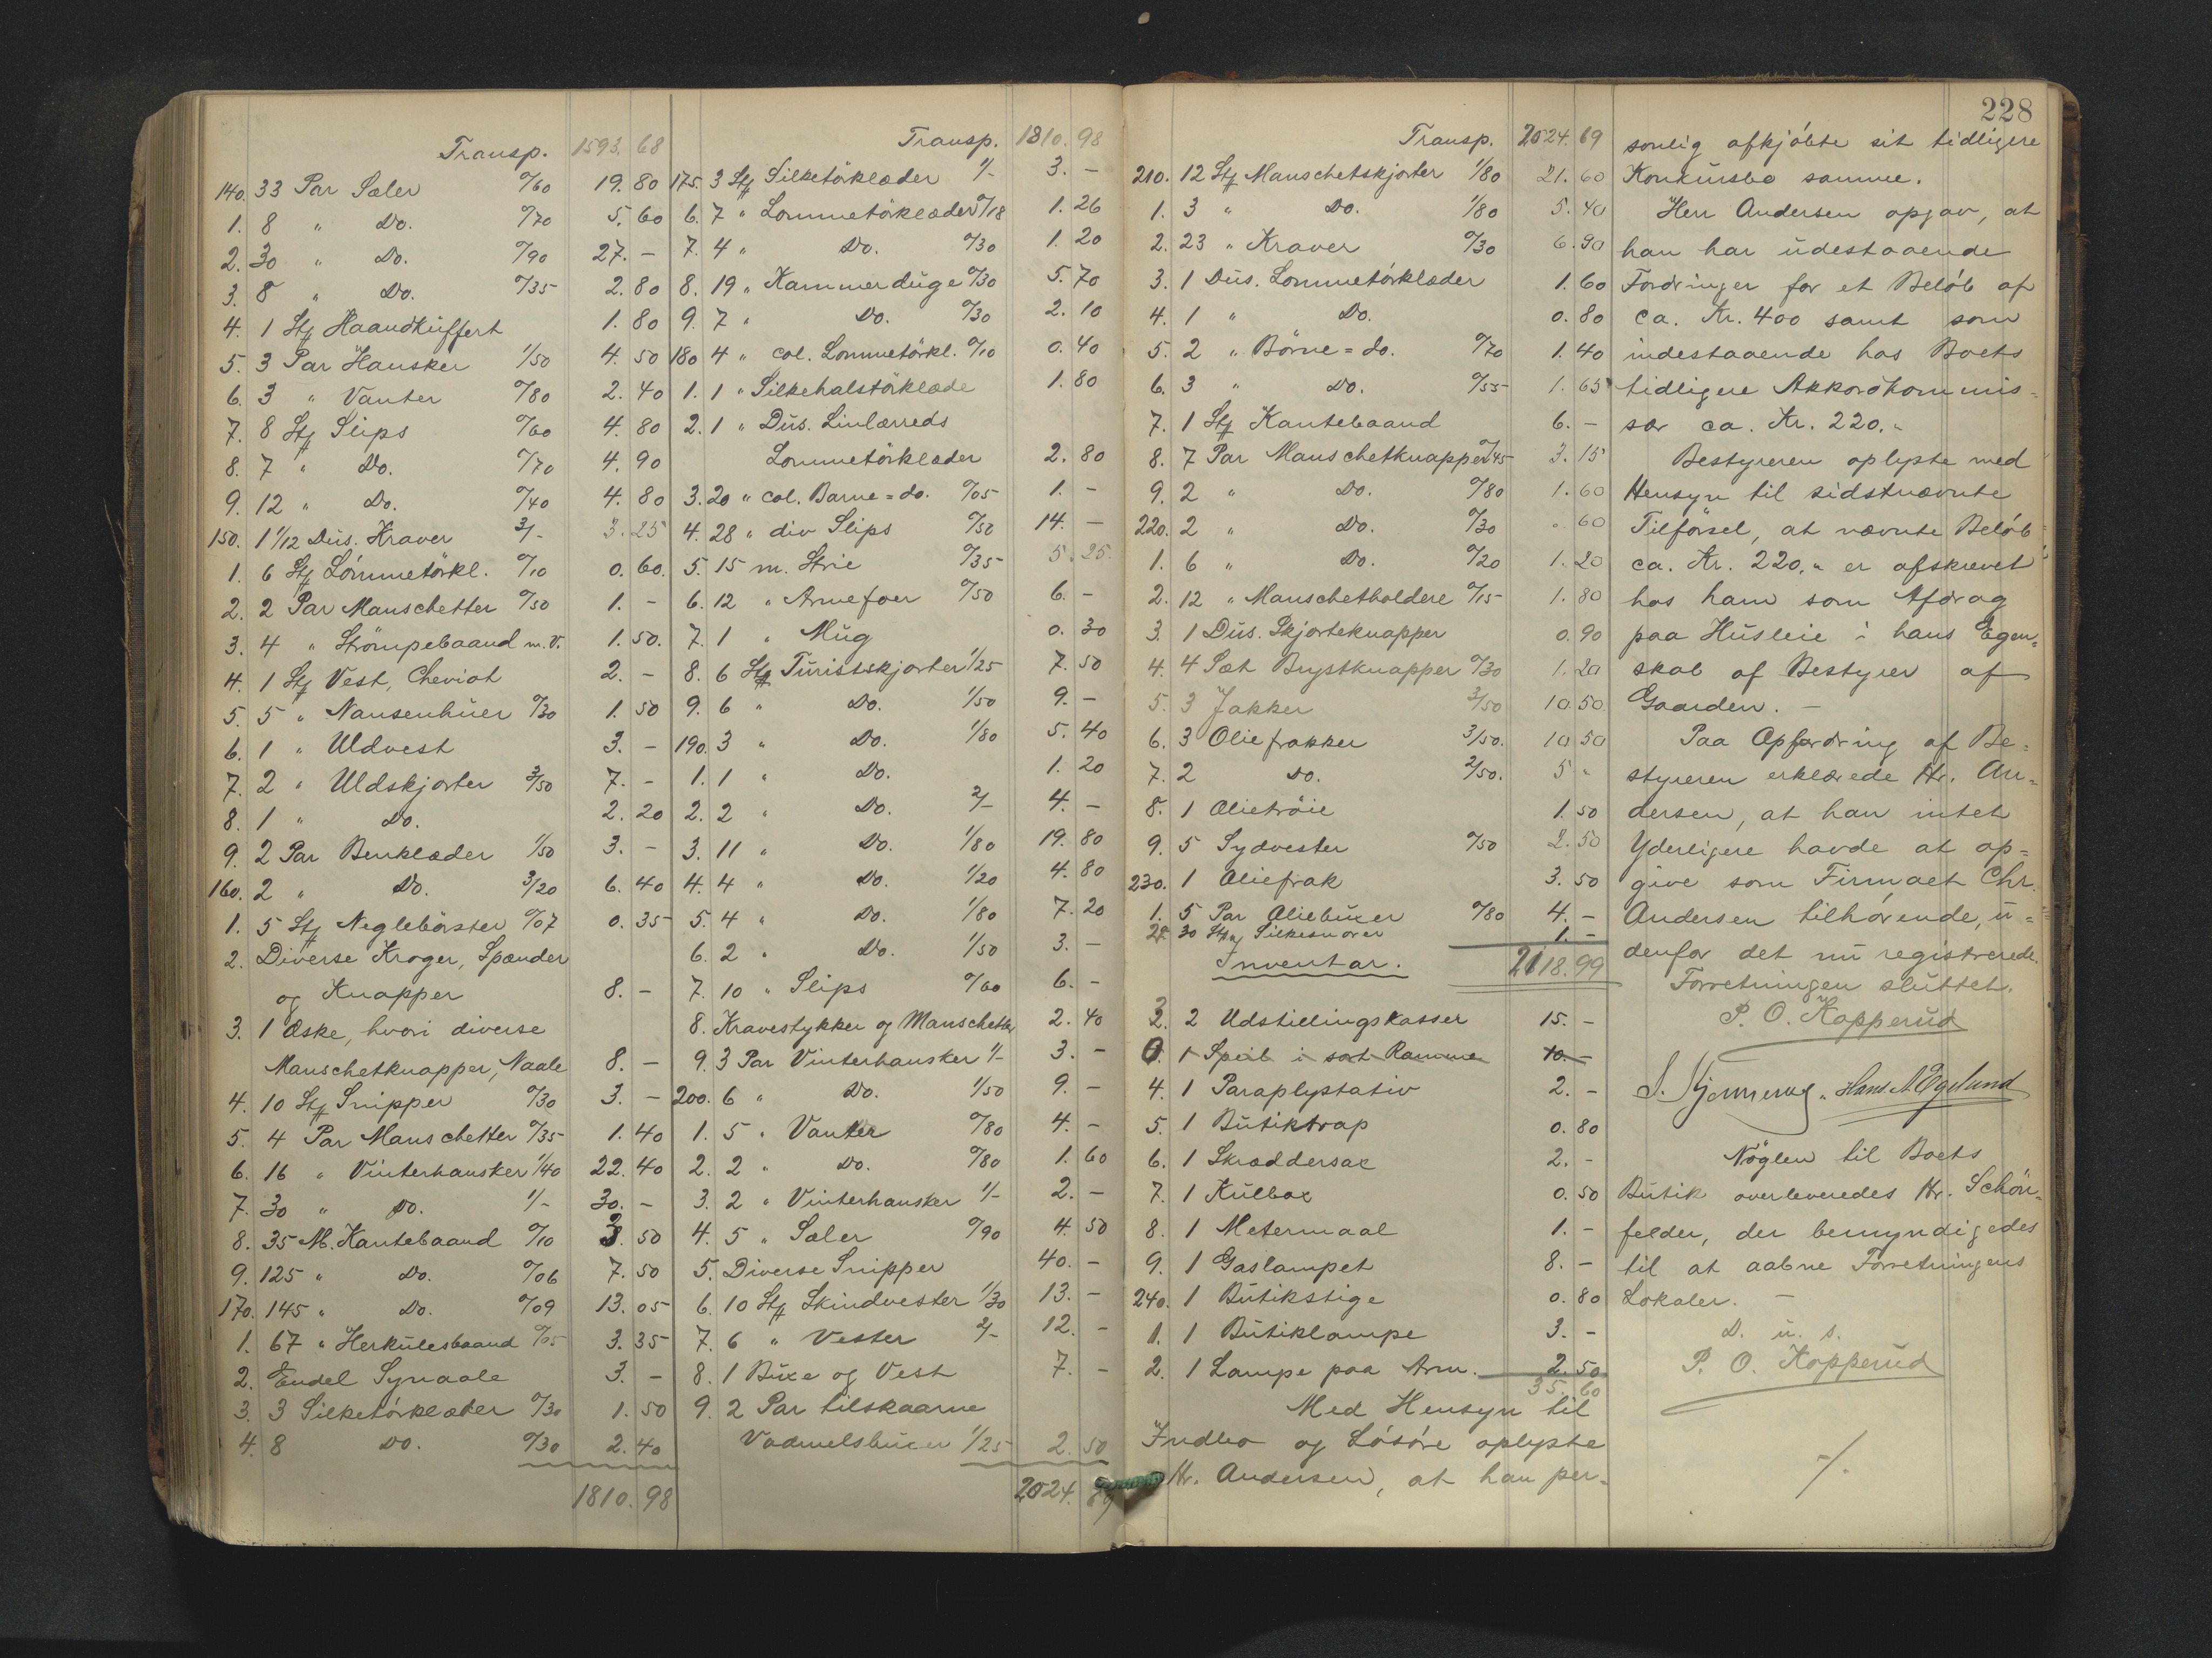 Transp. 1593. 68
140. 33 Par Sæler 0/60 19. 80
1. 8 " Do. 0/70 5. 60
2. 30 " Do. 0/90 27. -
3. 8 " Do. 0/35 2. 80
4. 1 Stk Haandkuffert 1. 80
5. 3 Par Hansker 1/50 4. 50
6. 3 " Vanter 0/80 2. 40
7. 8 Stk Slips 0/60 4. 80
8. 7 " Do. 0/70 4. 90
9. 12 " Do. 0/40 4. 80
150. 1 1/12 Dus. Kraver 3/- 3. 25
1. 6 Stk Lommetörkl. 0/10 0. 60.
2. 2 Par Manschetter 0/50 1. -
3. 4 " Strömpebaand m.v. 1. 50.
4. 1 Stk Vest, Cheviot 2. -
5. 5 " Nansenhuer 0/30 1. 50
6. 1 " Uldvest 3. -
7. 2 " Uldskjorter 3/50 7. -
8. 1 " Do. 2. 20
9. 2 Par Benklæder 1/50 3. -
160. 2 " Do. 3/20 6. 40
1. 5 Stk Neglebörster 0/07 0. 35
2. Diverse Kroger, Spænder
og Knapper 8. -
3. 1 Æske, hvori diverse
Manschetknapper, Naale 8. -
4. 10 Stk Snipper 0/30 3. -
5. 4 Par Manschetter 0/35 1. 40
6. 16 " Vinterhansker 1/40 22. 40
7. 30 " Do. 1/- 30. -
8. 35 M. Kantebaand 0/10 3. 50
9. 125 " Do. 0/06 7. 50
170. 145 " Do. 0/09 13. 05
1. 67 " Herkulesbaand 0/05 3. 35
2. Endel Synaale 3. -
3. 3 Silketörklæder 0/30 1. 50
4. 8 Do. 0/30 2. 40
1810. 98
Transp. 1810. 98
175. 3 Stk Silketörklæder 1/- 3. -
6. 7 " Lommetörklæder 0/18 1. 26
7. 4 " Do. 0/30 1. 20
8. 19 " Kammerduge 0/30 5. 70
9. 7 " Do. 0/30 2. 10
180 4 " col. Lommetörkl. 0/10 0. 40
1. 1 " Silkehalstöklæde 1. 80
2. 1 " Dus. Linlærreds
Lommetörklæder 2. 80
3. 20 " col. Barne=do. 0/05 1. -
4. 28 " div Slips 0/50 14. -
5. 15 m. Strie 0/35 5. 25.
6. 12 " Armefoer 0/50 6. -
7. 1 " Mug 0. 30
8. 6 Stk Turistskjorter 1/25 7. 50
9. 6 " Do. 1/50 9. -
190. 3 " Do. 1/80 5. 40
1. 1 " Do. 1. 20
2. 2 " Do. 2/- 4. -
3. 11 " Do. 1/80 19. 80
4. 4 " Do. 1/20 4. 80
5. 4 " Do. 1/80 7. 20
6. 2 " Do. 1/50 3. -
7. 10 " Slips 0/60 6. -
8. Kravestykker og Manschetter 2. 40
9. 3 Par Vinterhansker 1/- 3. -
200. 6 " Do. 1/50 9. -
1. 5 " Vanter 0/80 4. -
2. 2 " Do. 0/80 1. 60
3. 2 " Vinterhansker 1/- 2. -
4. 5 " Sæler 0/90 4. 50
5. Diverse Snipper 40. -
6. 10 Stk Skindvester 1/30 13. -
7. 6 " Vester 2/- 12. -
8. 1 Buxe og Vest 7. -
9. 2 Par tilskaarne
Vadmelsbuxer 1/25 2. 50
2024. 69
Transp. 2024. 69
210. 12 Stk Manschetskjorter 1/80 21. 60
1. 3 " Do. 1/80 5. 40
2. 23 " Kraver 0/30 6. 90
3. 1 Dus. Lommetörklæder 1. 60
4. 1 " Do. 0. 80
5. 2 " Börne=do. 0/70 1. 40
6. 3 " Do. 0/55 1. 65
7. 1 Stk Kantebaand 6. -
8. 7 Par Manschetknapper 0/45 3. 15
9. 2 " Do. 0/80 1. 60
220. 2 " Do. 0/30 " 60
1. 6 " Do. 0/20 1. 20
2. 12 " Manschetholdere 0/15 1. 80
3. 1 Dus. Skjorteknapper 0. 90
4. 4 Sæt Brystknapper 0/30 1. 20
5. 3 Jakker 3/50 10. 50
6. 3 Oliefrakker 3/50. 10 50
7. 2 Do. 2/50. 5 "
8. 1 Olietröie 1. 50
9. 5 Sydvester 0/50 2. 50
230. 1 Oliefrak 3. 50
1. 5 Par Oliebuxer 0/80 4. -
2. 30 Stk Silkesnorer 1. -
Inventar. 2118. 99
3. 2 Udstillingskasser 15. -
1 Speil i sort Ramme 10. -
4. 1 Paraplystativ 2. -
5. 1 Butiktrap 0. 80
6. 1 Skræddersax 2. -
7. 1 Kulbox 0. 50
8. 1 Metermaal 1. -
9. 1 Gaslampet 8. -
240. 1 Butikstige 0. 80
1. 1 Butiklampe 3. -
2. 1 Lampe paa Arm. 2. 50
35. 60
Med Hensyn til
Indbo og Lösöre oplyste
Hr. Andersen, at han per-
228
sonlig afkjöbte sit tidligere
Konkursbo samme.
Herr Andersen opgav, at
han har udestaaende
Fordringer for et Belöb af
ca. Kr. 400 samt som
indestaaende hos Boets
tidligere Akkordkommis-
sær ca. Kr. 220."
Bestyreren oplyste med
Hensyn til sidstnævnte
Tilförsel, at nævnte Belöb
ca. Kr. 220." er afskrevet
hos ham som Afdrag
paa Husleie i hans Egen-
skab af Bestyrer af
Gaarden. -
Paa Opfordring af Be-
styreren erklærede Hr. An-
dersen, at han intet
Yderligere havde at op-
give som Firmaet Chr.
Andersen tilhörende, u-
denfor det nu registrerede.
Forretningen sluttet.
P. O. Kopperud
Hans A Egelund
Nöglen til Boets
Butik overleveredes Hr. Schön-
felder, der bemyndigedes
til at aabne Forretningens
Lokaler. -
D. u. s.
P. O. Kopperud